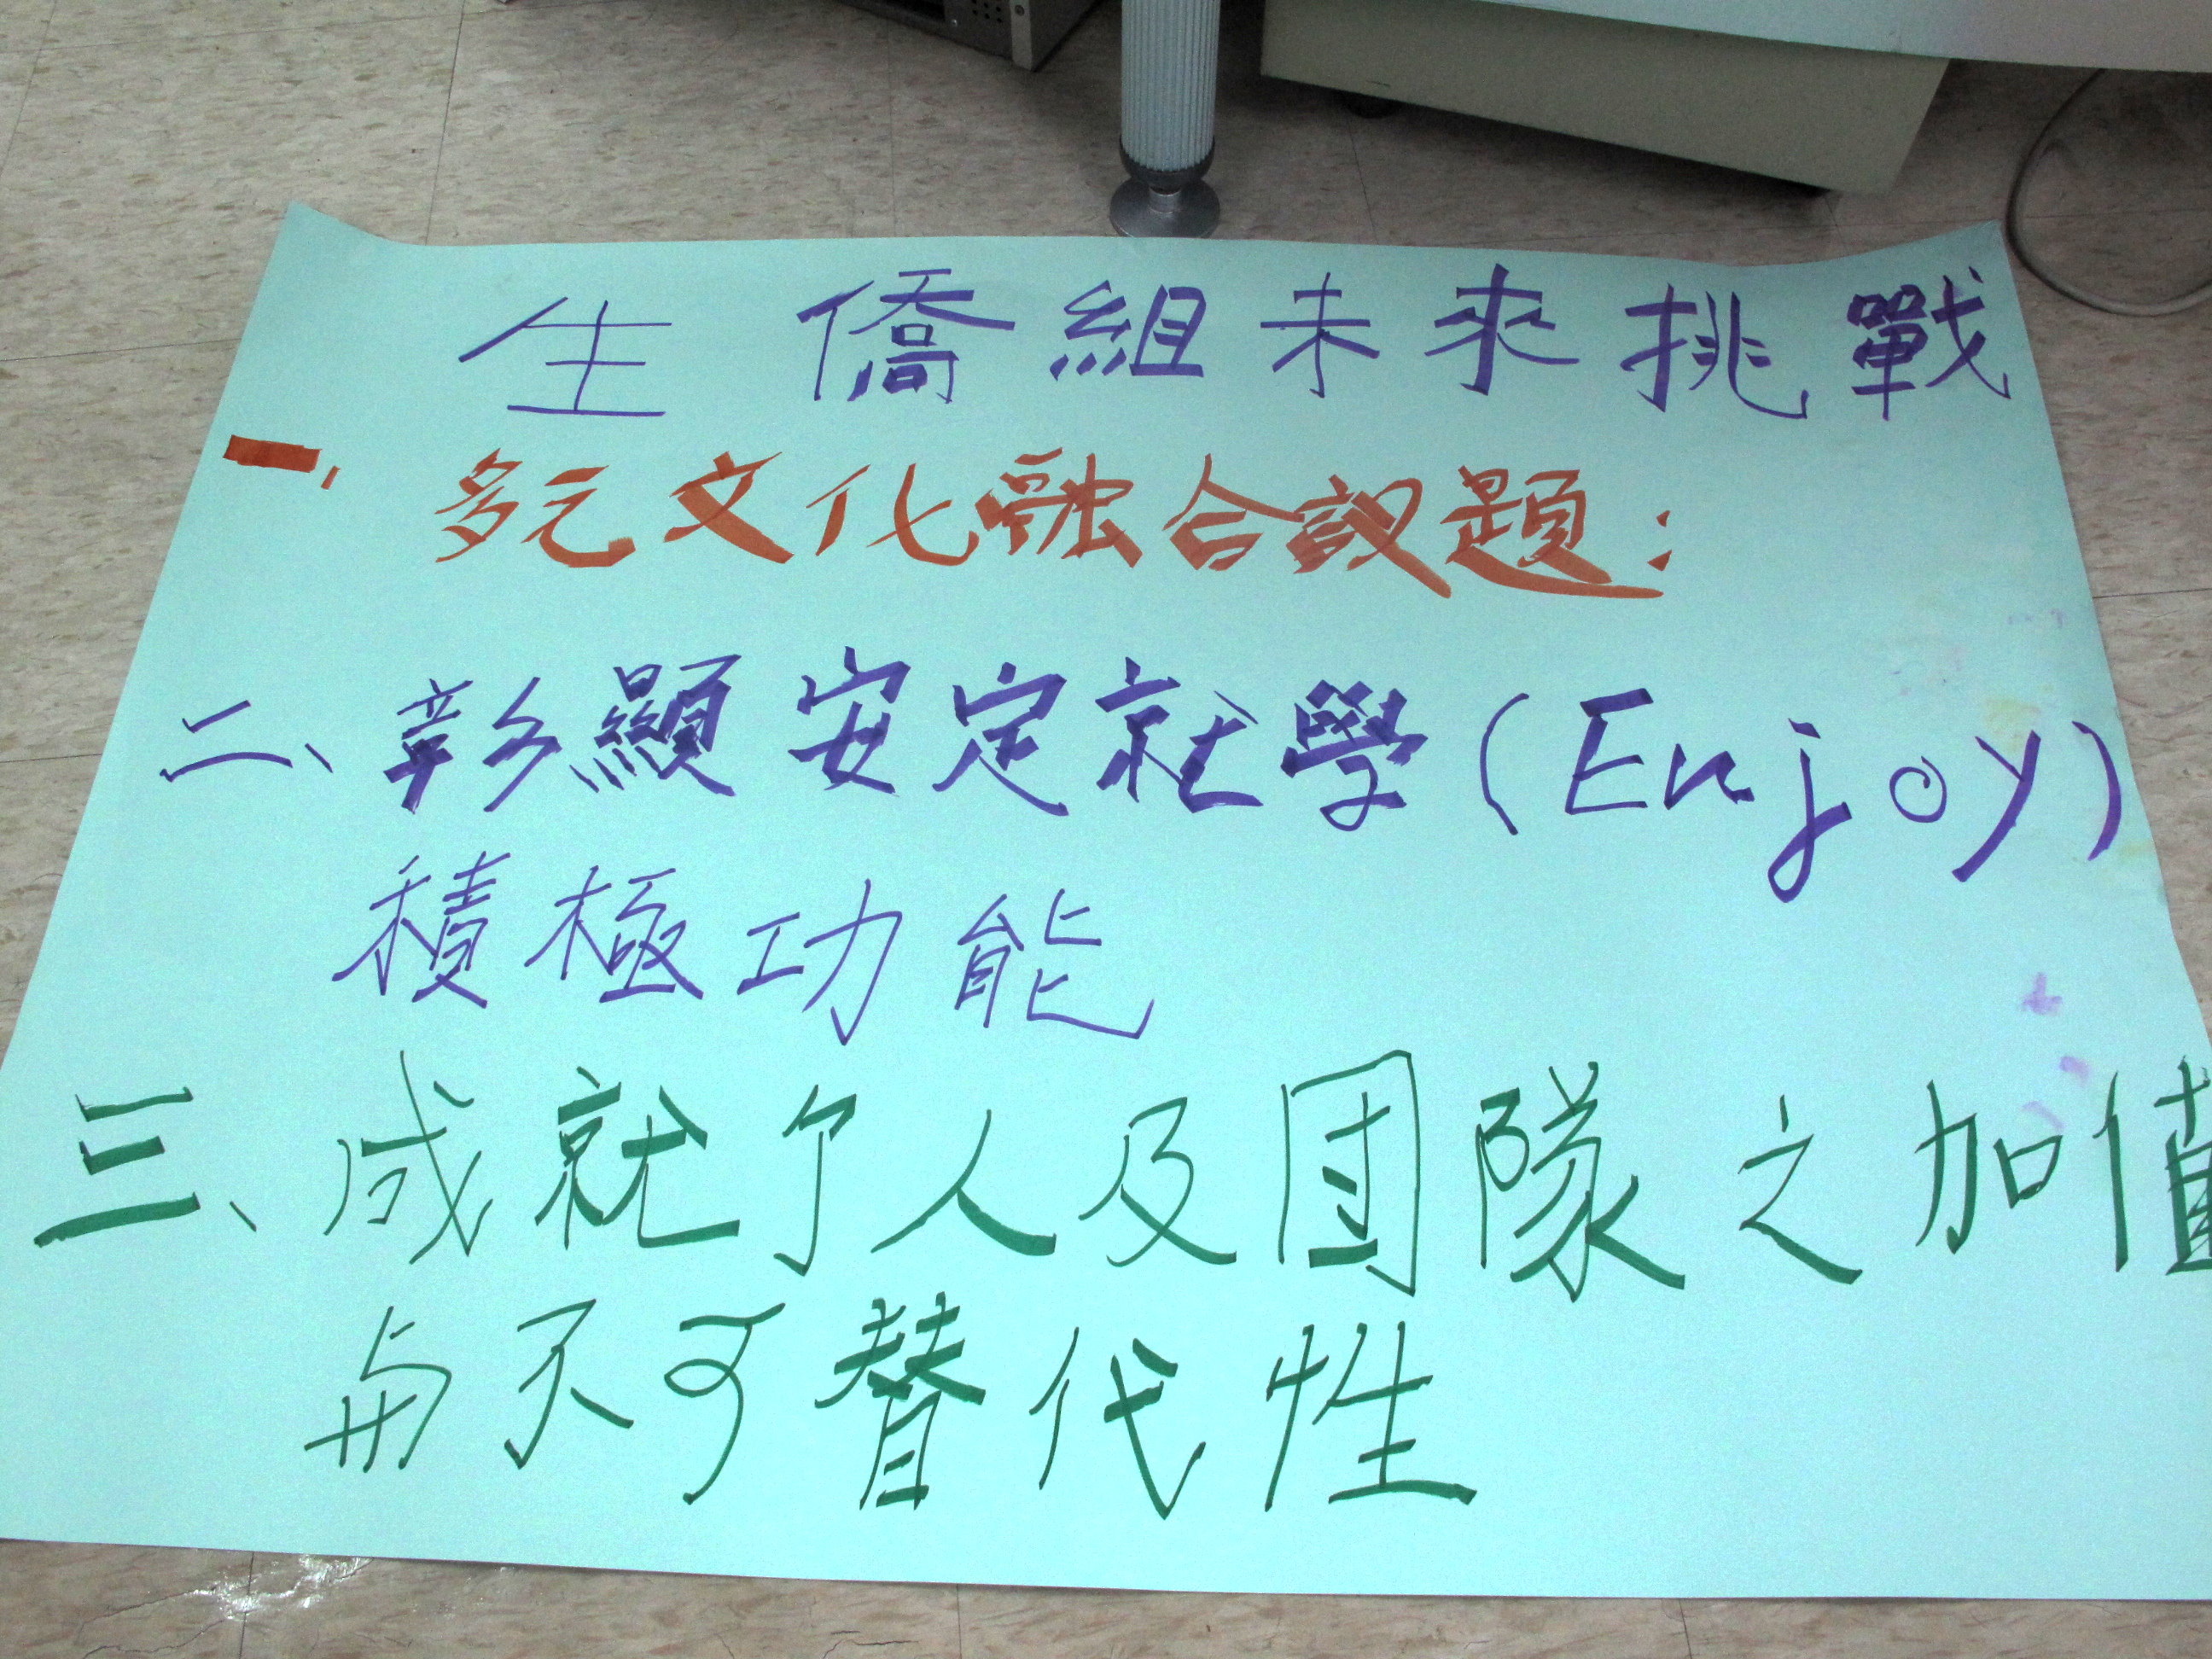 生僑組未來挑戰
一、多元文化融合議題：
二、彰顯安定就學(Enjoy)
積極功能
三、成就个人及团隊之加值
与不可替代性